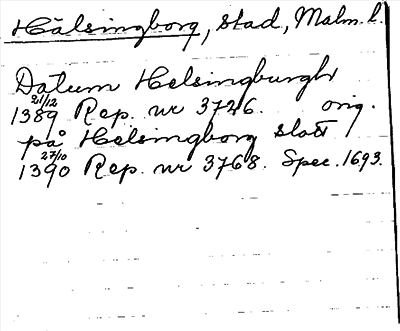 Hälsingborg, stad, Malm. l.
Datum Helsingburgh
21/12
1389 Rep. nr 3726. orig.
på Helsingborg slott
27/10
1390 Rep. nr 3768. Spec. 1693.